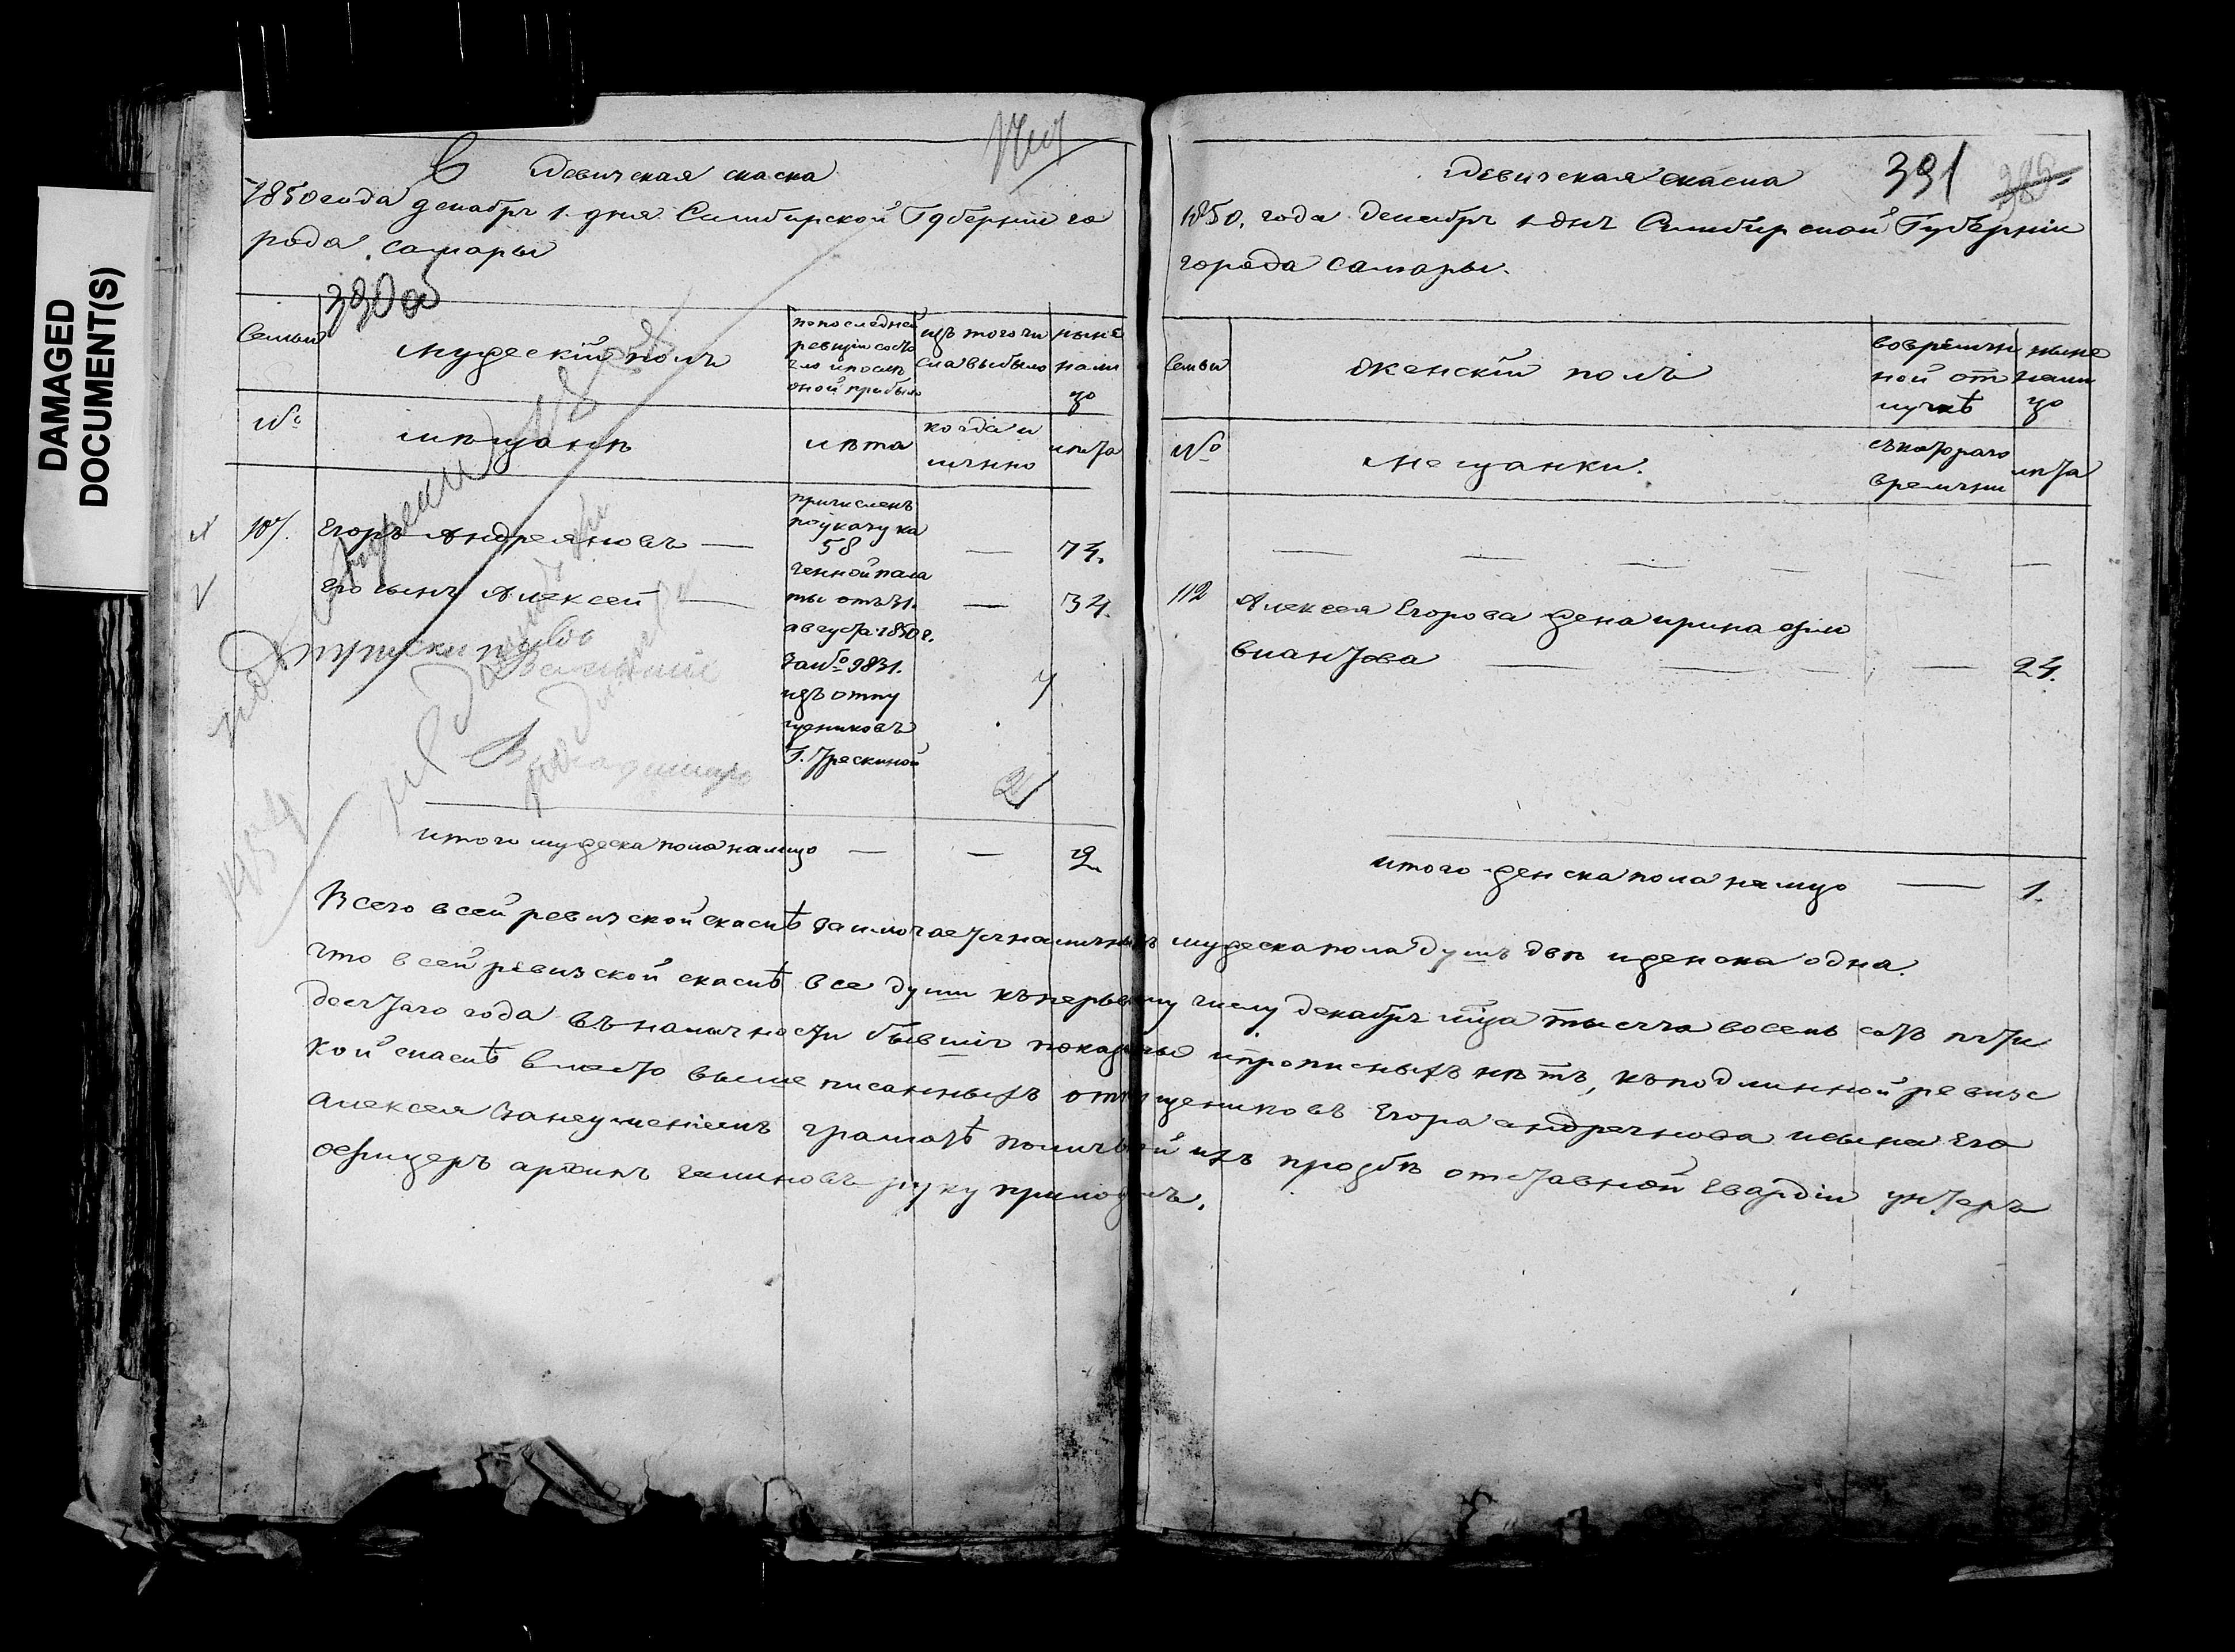 DAMAGED
DOCUMENT(S)
Ревизская скаска
1850 года декабря 1. дня Симбирской Губернии го
рода самары
390 об
Семьи
мужескій полъ
попоследней
ревизіи состо
яло ипосле
оной прибыло
изъ того чи
сла выбыло
ныне
нали
цо
№
мещане
лета
когда и
имянно
лета
107.
Егоръ Андреяновъ —
Его сынъ Алексей —
причисленъ
поуказу ка
58
зенной пала
ты отъ 31.
августа 1850 г.
за № 9831.
изъ отпу
щениковъ
Г. Трескиной
—
—
74.
34.
Владимиръ
2
итого мужеска пола налицо — — 2.
Ревизская скаска
391
389
1850. года декабря 1 дня Симбирской Губерніи
города самары.
Семьи
женскій полъ
вовремян
ной от
лучкѣ
ныне
нали
цо
№
мещанки.
съкотораго
времяни
лета
112 Алексея Егорова жена ирина фли
виантова — — 24.
итого женска пола налицо — 1.
Всего всей ревизской скаскѣ заключается наличныхъ мужеска пола душъ две иженска одна.
что всей ревизской скаскѣ все души къ первому числу декабря мца тысяча восемь сотъ пяти
десятаго года въ наличности бывшія показаны ипрописныхъ нетъ, къ подлинной ревизс
кой скаскѣ вместо выше писанныхъ отпущениковъ Егора андреянова исына Его
Алексея Занеумениемъ грамотѣ поличной ихъ прозбе отставной Гвардіи унтеръ
офицеръ руку приложилъ.